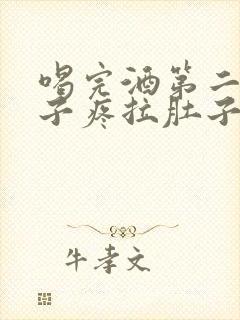 喝完酒第二
子疼拉肚子
牛孝文